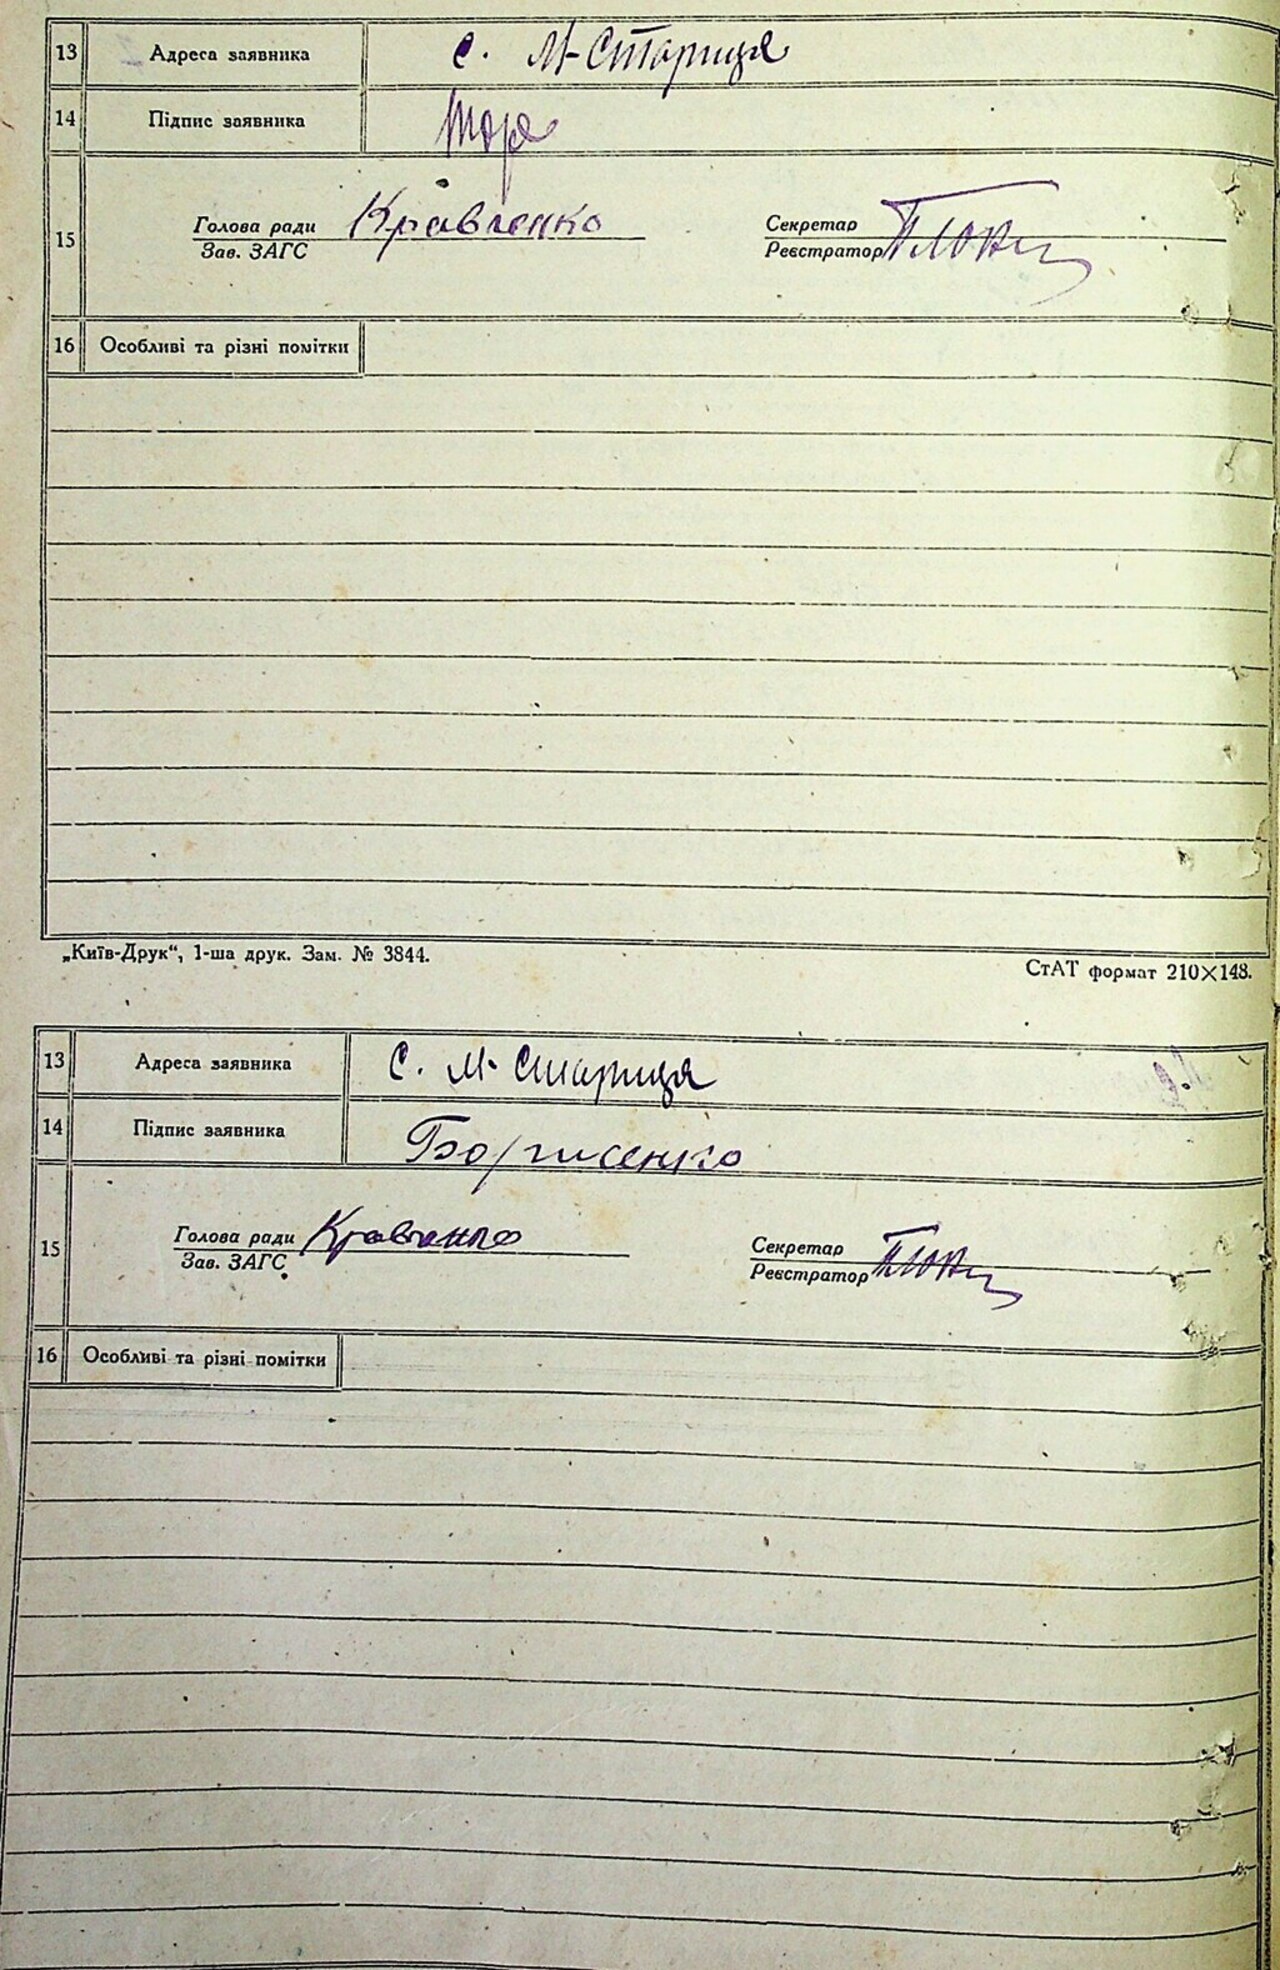 13 Адреса заявника с. М-Стариця
14 Підпис заявника
15 Голова ради Кравченко Секретар
Зав. ЗАГС Реєстратор
16 Особливі та різні помітки
„Київ-Друк“, 1-ша друк. Зам. № 3844.
СтАТ формат 210×148.
13 Адреса заявника С. М-Стариця
14 Підпис заявника Борисенко
15 Голова ради Кравченко Секретар
Зав. ЗАГС Реєстратор
16 Особливі та різні помітки